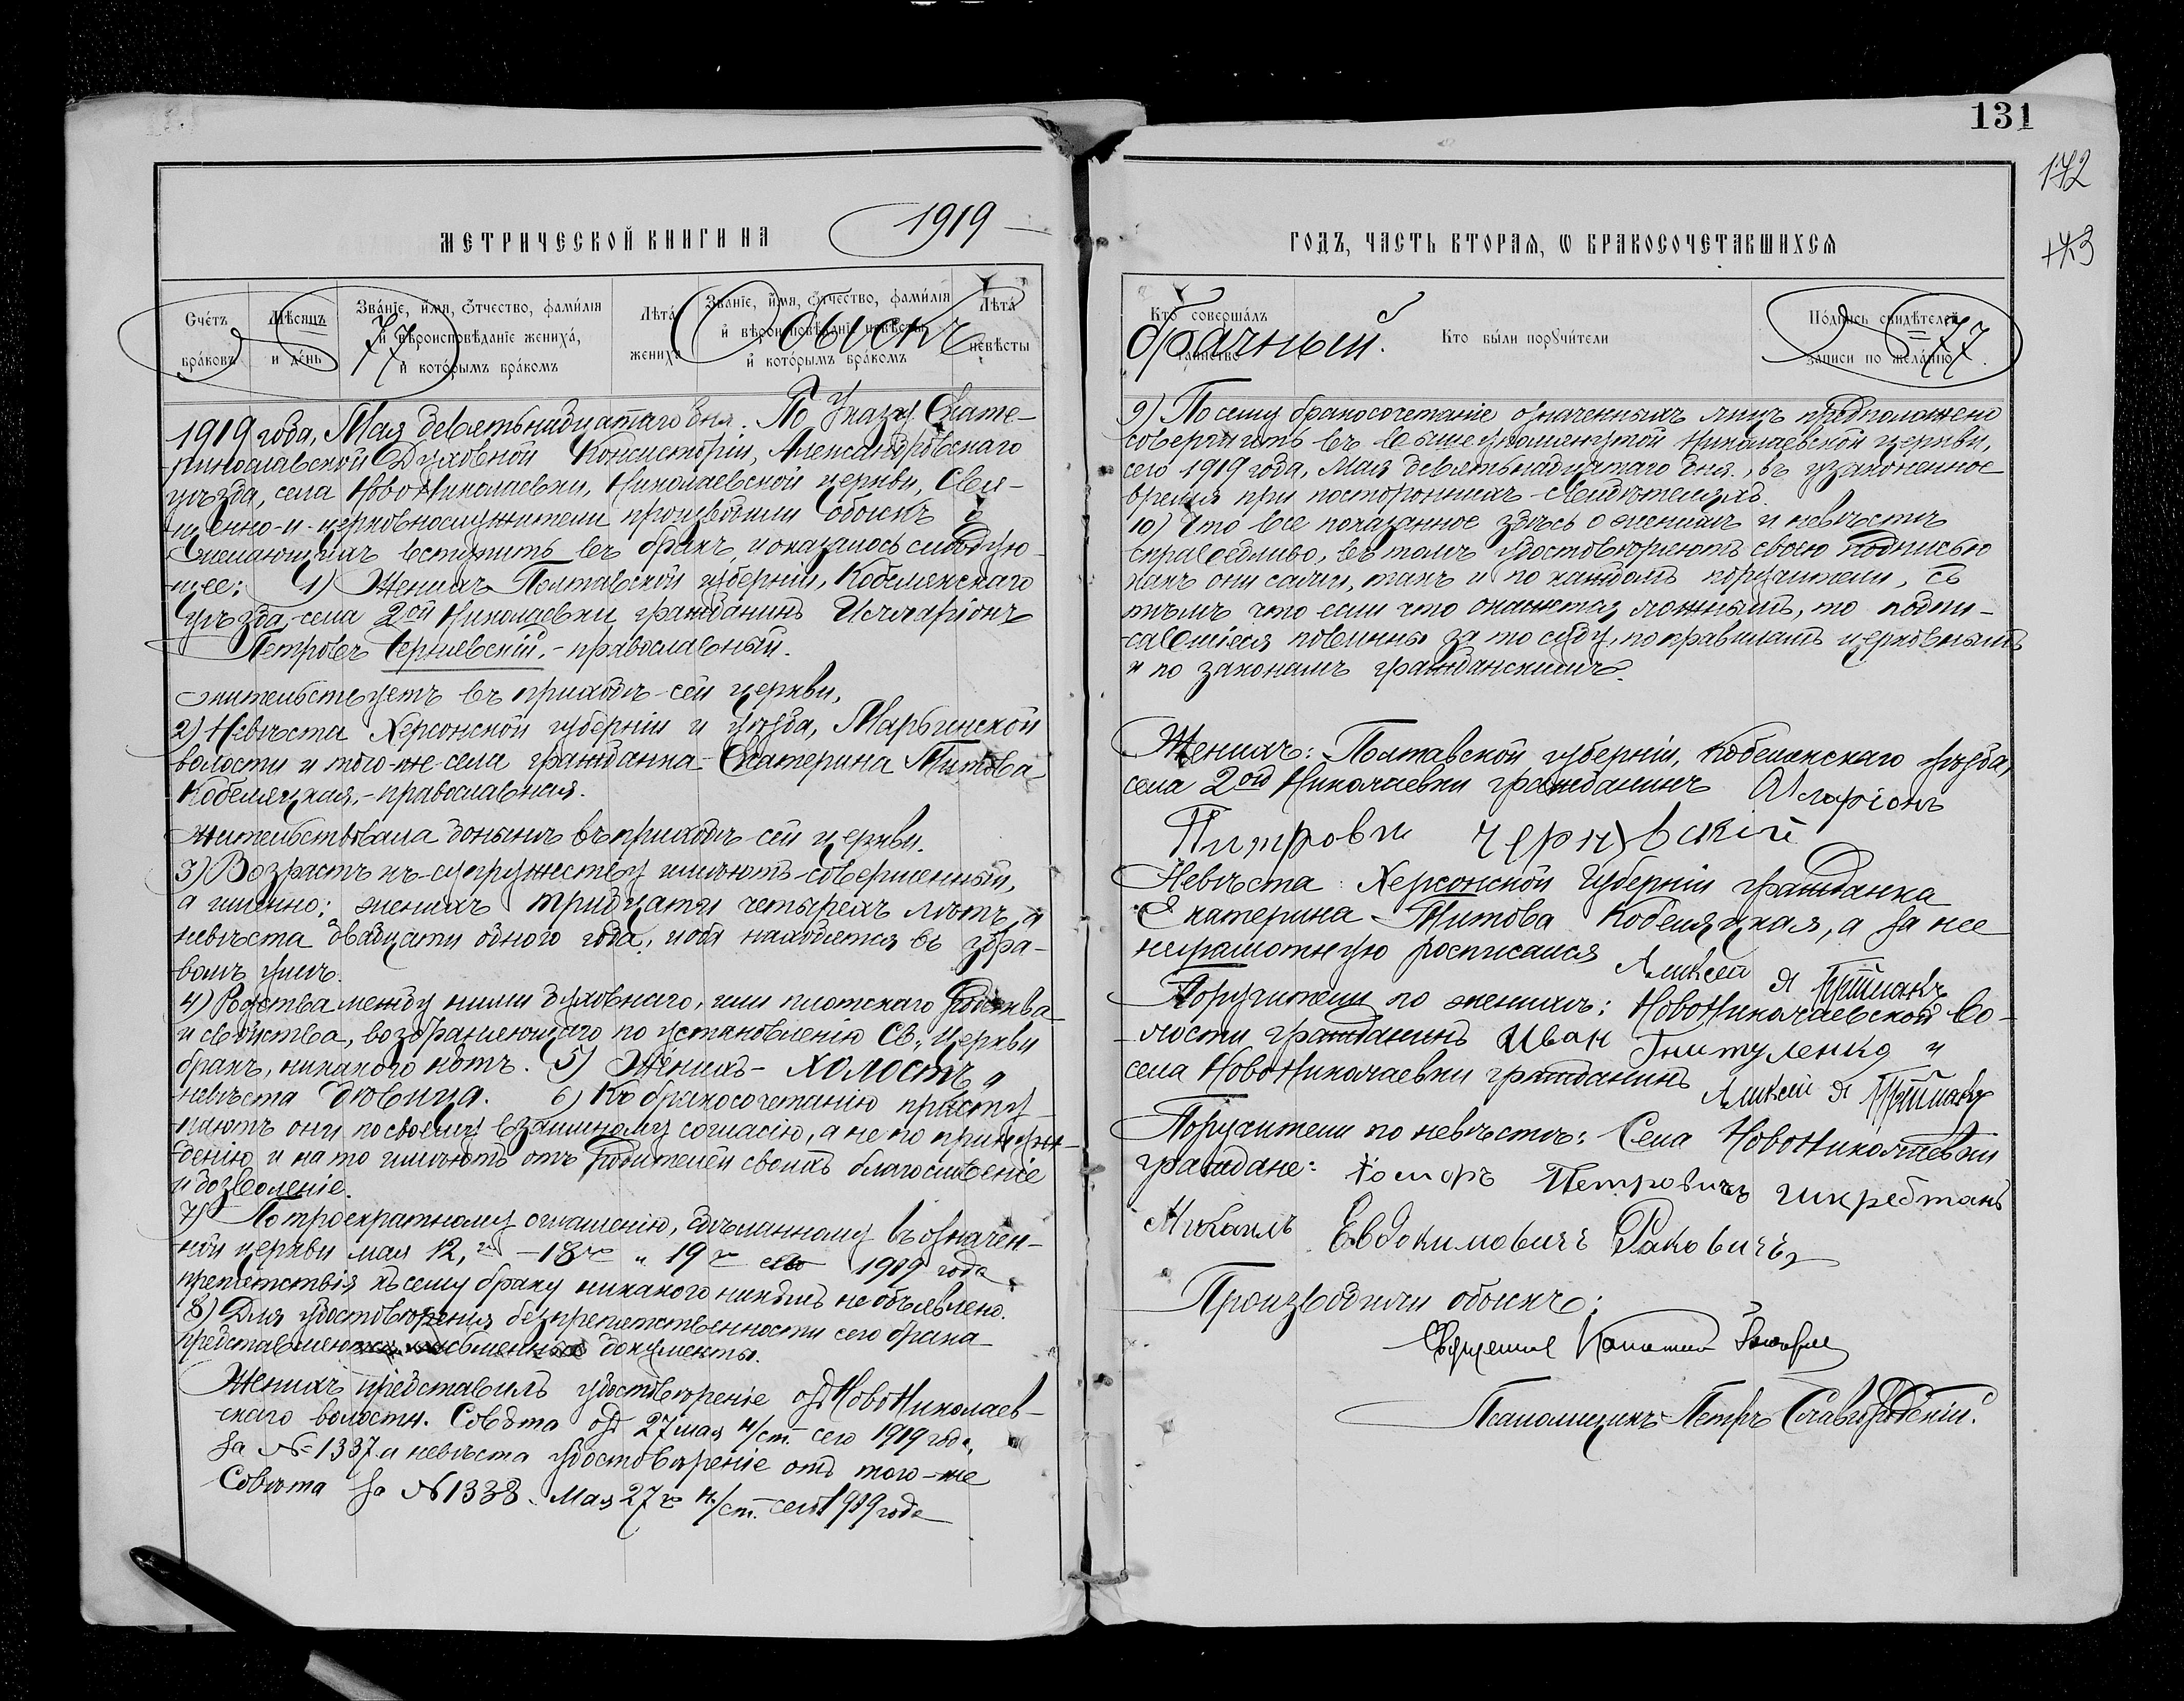 131
172
173
МЕТРИЧЕСКОЙ КНИГИ НА 1919
Счетъ браковъ
Мѣсяцъ и день
Званіе, имя, отчество, фамилія и вѣроисповѣданіе жениха, и которымъ бракомъ
Лѣта жениха
Званіе, имя, отчество, фамилія и вѣроисповѣданіе невѣсты и которымъ бракомъ
Лѣта невѣсты
77
Обыскъ
1919 года, Мая девятьнадцатаго дня. По Указу Екате-
ринославской Духовной Консисторіи, Александровскаго
уѣзда, села НовоНиколаевки, Николаевской церкви, Свя-
щенно-и-церковнослужители производили обыскъ о
желающихъ вступить въ бракъ и оказалось слѣдую-
щее: 1) Женихъ Полтавской губерніи, Кобелякскаго
уѣзда, села 2ой Николаевки гражданинъ Илларіонъ
Петровъ Черневскій, - православный.
жительствуетъ въ приходѣ сей церкви,
2) Невѣста Херсонской губерніи и уѣзда, Марьинской
волости и того-же села гражданка Екатерина Титова
Кобеляцкая, - православная.
жительствовала донынѣ въ приходѣ сей церкви.
3) Возрастъ къ супружеству имѣютъ совершенный,
а именно: женихъ тридцати четырехъ лѣтъ, а
невѣста двадцати одного года, и оба находятся въ здра-
вомъ умѣ.
4) Родства между ними духовнаго, или плотскаго родства
и свойства, возбраняющаго по установленію Св. Церкви
бракъ, никакого нѣтъ. 5) Женихъ - холостъ, а
невѣста дѣвица. 6) Къ бракосочетанію присту-
паютъ они по своему взаимному согласію, а не по принуж-
денію, и на то имѣютъ отъ родителей своихъ благословеніе
и дозволеніе.
7) По троекратному оглашенію, сдѣланному въ означен-
ной церкви мая 12, го - 18го и 19го сего 1919 года
препятствія къ сему браку никакого никѣмъ не объявлено.
8) Для удостовѣренія безпрепятственности сего брака
представляются письменные документы.
Женихъ представилъ удостовѣреніе отъ НовоНиколаев-
скаго волостн. Совѣта отъ 27 мая н/ст. сего 1919 года,
за № 1337 а невѣста удостовѣреніе отъ того-же
Совѣта за № 1338. Мая 27го н/ст. сего 1919 года
ГОДЪ, ЧАСТЬ ВТОРАЯ, Ѡ БРАКОСОЧЕТАВШИХСЯ
Кто совершалъ таинство
Кто были поручители
Подпись свидѣтелей записи по желанію
брачный.
77.
9) По сему бракосочетаніе означенныхъ лицъ предположено
совершить въ вышеупомянутой Николаевской церкви,
сего 1919 года, Мая девятьнадцатаго дня, въ узаконенное
время при постороннихъ свидѣтеляхъ.
10) Что все показанное здѣсь о женихѣ и невѣстѣ
справедливо, въ томъ удостовѣряютъ своею подписью
какъ они сами, такъ и по каждомъ поручители, съ
тѣмъ что если что окажется ложнымъ, то подпи-
савшіеся повинны за то суду, по правиламъ церковнымъ
и по законамъ гражданскимъ.
Женихъ: Полтавской губерніи, Кобелякскаго уѣзда,
села 2ой Николаевки гражданинъ Иларіонъ
Питровичь чернѣвскій
Невѣста: Херсонской Губерніи гражданка
Екатерина Титова Кобеляцкая, а за нее
неграмотную росписался Алексей
Поручители по женихѣ: НовоНиколаевской во-
лости гражданинъ Иван Гнитуленко и
села НовоНиколаевки гражданинъ Алексей
Поручители по невѣстѣ: Села НовоНиколаевки
граждане: Петровичъ
Михаилъ Евдокимовичъ Раковичъ
Производили обыскъ:
Священникъ
Псаломщикъ Петръ Славгородскій.